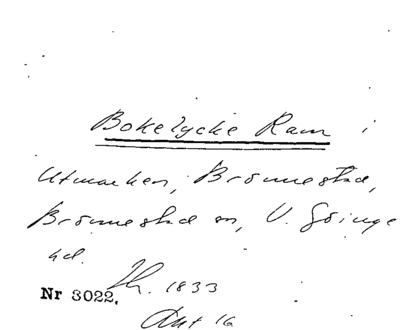 Bokelycke Ram i
Utmarken, Brönnestad,
Brönnestad sn, V. Göinge
hd.
Nr 3022. Th. 1833
Akt 16